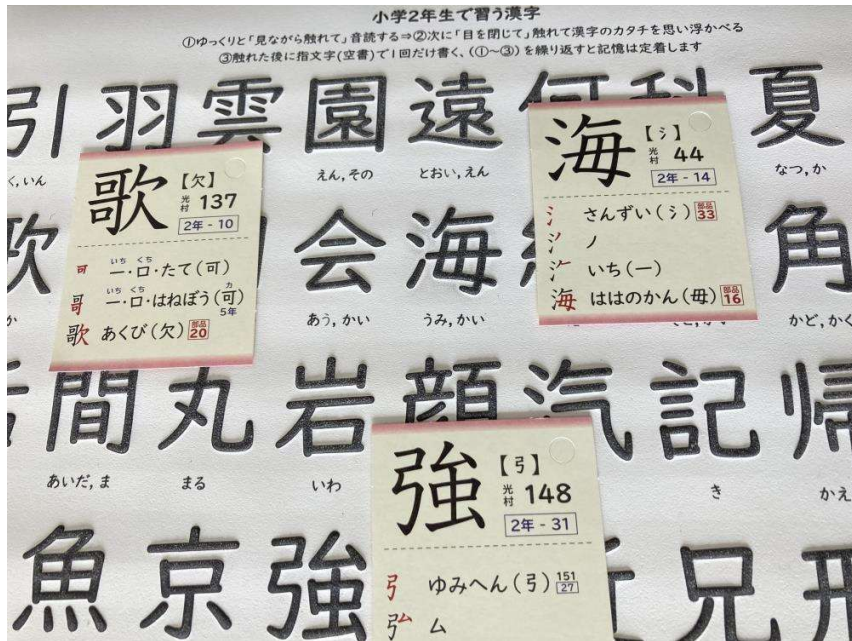 小学2年生で習う漢字
①ゆっくりと「見ながら触れて」音読する⇒②次に「目を閉じて」触れて漢字のカタチを思い浮かべる
③触れた後に指文字(空書)で1回だけ書く、(①~③)を繰り返すと記憶は定着します
引 羽 雲 園 遠 何 科 夏
く,いん えん,その とおい,えん なつ,か
歌 会 海 角
か あう,かい うみ,かい かど,かく
間 丸 岩 顔 汽 記 帰
あいだ,ま まる いわ き かえ
魚 京 強 兄
歌
【欠】
光村 137
2年 - 10
可 いち くち
一・口・たて(可)
哥 いち くち カ
一・口・はねぼう(可)
5年
歌 あくび(欠) 部品 20
海
【氵】
光村 44
2年 - 14
氵 さんずい(氵) 部品 33
ノ
いち(一)
海 ははのかん(毋) 部品 16
強
【弓】
光村 148
2年 - 31
弓 ゆみへん(弓) 151 27
ム